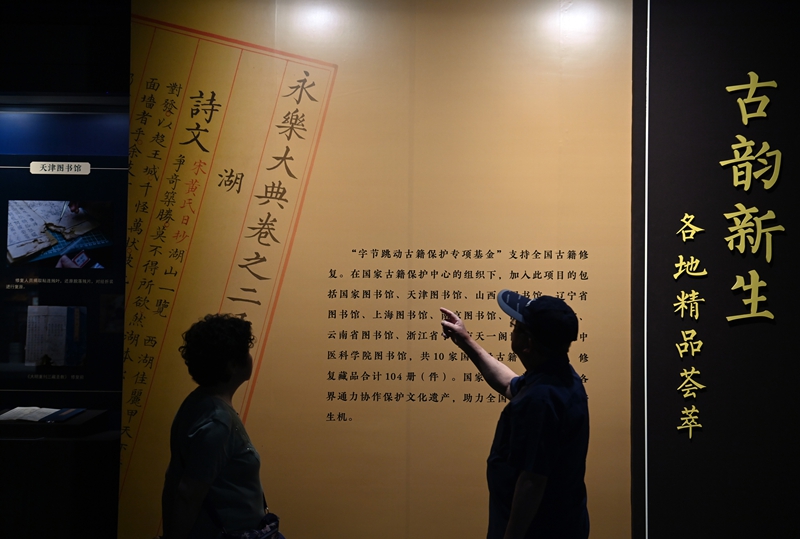 古韵新生
各地精品荟萃
永樂大典卷之二
湖
詩文
宋黃氏日抄
對發以
湖山一覽
爭奇築勝莫不得所欲然
西湖佳麗甲天
超王城千怪萬狀
面墻者乎余
天津图书馆
“字节跳动古籍保护专项基金”支持全国古籍修
复。在国家古籍保护中心的组织下，加入此项目的包
括国家图书馆、天津图书馆、山西 书馆、辽宁省
图书馆、上海图书馆、 图书馆、
云南省图书馆、浙江省 天一阁 中
医科学院图书馆，共10家国 古籍 修
复藏品合计104册（件）。国家 各
界通力协作保护文化遗产，助力全国
生机。